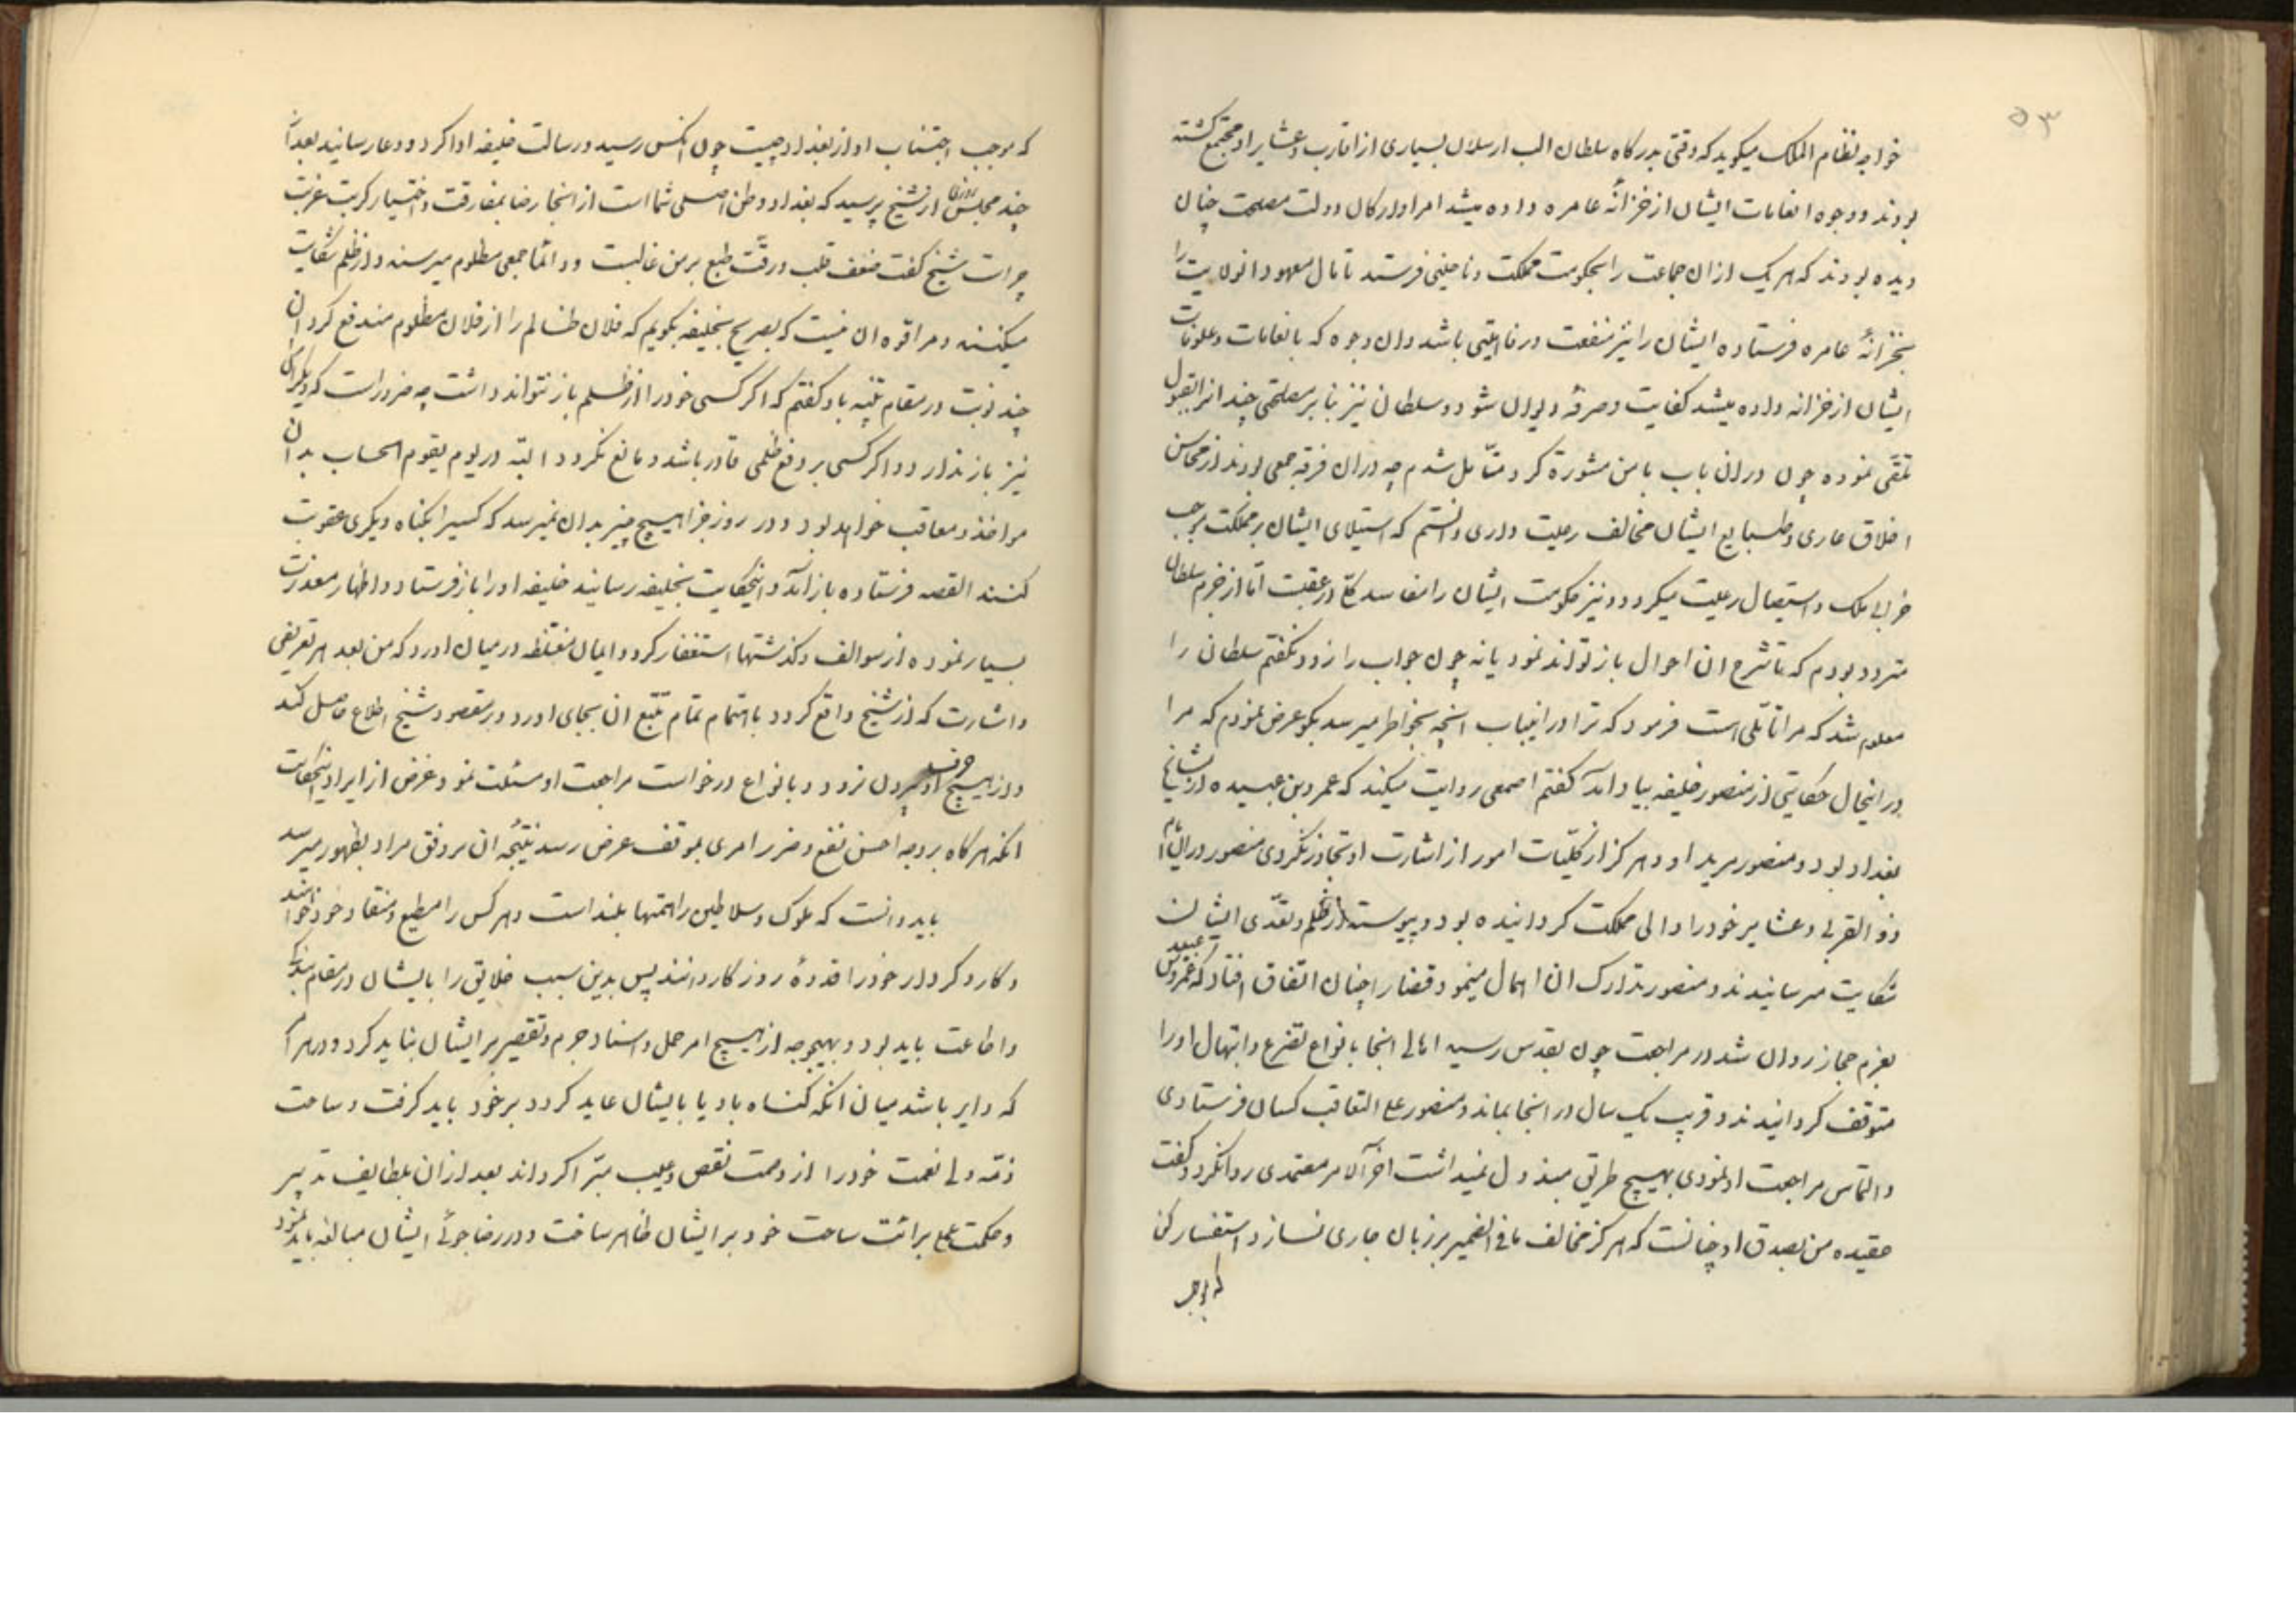 ۵۳
خواجه نظام الملک میکوید که وقتی بدرکاه سلطان الب ارسلان بسیاری از اقارب و عشایر او مجتمع کشته
بودند و وجوه انعامات ایشان از خزانهٔ عامره داده میشد امرا و ارکان دولت مصلحت چنان
دیده بودند که هر یک ازان جماعت را بحکومت مملکت و ناحیتی فرستد تا مال معهود انولایت را
بخزانهٔ عامره فرستاده ایشان را نیز منفعت و رفاهیتی باشد وان وجوه که بانعامات و علوفات
ایشان از خزانه داده میشد کفایت و صرفهٔ دیوان شود و سلطان نیز بنا بر مصلحتی چند انرا بقبول
تلقی نموده چون دران باب با من مشورة کرد متأمل شدم چه دران فرقه جمعی بودند از محاسن
اخلاق عاری و طبایع ایشان مخالف رعیت داری دانستم که استیلای ایشان بر مملکت موجب
خرابی ملک و استیصال رعیت میکردد و نیز حکومت ایشان را مفاسد کلّی در عقبست امّا از حزم سلطان
متردد بودم که تا شرح ان احوال باز تواند نمود یا نه چون جواب را زود نکفتم سلطان را
معلوم شد که مرا تأملی است فرمود که ترا در اینباب انچه بخواطر میرسد بکو عرض نمودم که مرا
در اینحال حکایتی از منصور خلیفه بیاد امد کفتم اصمعی روایت میکند که عمرو بن عبیده از مشایخ
بغداد بود و منصور مرید او و هرکز از کلّیات امور از اشارت او تجاوز نکردی منصور دران ایام
ذو القربی و عشایر خود را والی مملکت کردانیده بود و پیوسته از ظلم و تعدّی ایشان
شکایت میرسانیدند و منصور تدارک ان اهمال مینمود قضا را چنان اتفاق افتاد که عمرو بن عبید
بعزم حجاز روان شد در مراجعت چون بقدس رسید اهالی انجا بانواع تضرع و ابتهال او را
متوقف کردانیدند و قریب یک سال در انجا بماند و منصور علی التعاقب کسان فرستادی
و التماس مراجعت او نمودی بهیچ طریق مبذول نمیداشت اخر الامر معتمدی روانکرد و کفت
عقیده من بصدق او چنانست که هرکز مخالف ما فی الضمیر بر زبان جاری نسازد استفسار کن
که موجب
که موجب اجتناب او از بغداد چیست چون انکس رسید و رسالت خلیفه ادا کرد و دعا رسانید بعد از
چند مجلس روزی از شیخ پرسید که بغداد وطن اصلی شما است از انجا رضا بمفارقت و اختیار کربت غربت
چراست شیخ کفت ضعف قلب و رقّت طبع بر من غالبست و دائما جمعی مظلوم میرسند و از ظلم شکایت
میکنند و مرا قوه ان نیست که بصریح بخلیفه بکویم که فلان ظالم را از فلان مظلوم مندفع کردان
چند نوبت در مقام تنبیه باو کفتم که اکر کسی خود را از ظلم باز نتواند داشت چه ضرور است که دیکرانرا
نیز باز ندارد و اکر کسی بر دفع ظلمی قادر باشد و مانع نکردد البته در یوم یقوم الحساب بدان
مواخذ و معاقب خواهد بود و در روز جزا هیچ چیز بدان نمیرسد که کسیرا بکناه دیکری عقوبت
کنند القصه فرستاده باز امد و اینحکایت بخلیفه رسانید خلیفه او را باز فرستاد و اظهار معذرت
بسیار نموده از سوالف و کذشتها استغفار کرد و ایمان مغلظه در میان اورد که من بعد هر تعریضی
و اشارت که از شیخ واقع کردد باهتمام تمام تتبّع ان بجای اورد و بر مقصود شیخ اطلاع حاصل کند
و از هیچ حرف او بیرون نرود و بانواع درخواست مراجعت او مسئلت نمود غرض از ایراد اینحکایت
انکه هرکاه بر وجه احسن نفع و ضرر امری بموقف عرض رسد نتیجه ان بر وفق مراد بظهور میرسد
باید دانست که ملوک و سلاطین را همتها بلند است و هر کس را مطیع و منقاد خود خواهند
و کار و کردار خود را قدوهٔ روزکار دانند پس بدین سبب خلایق را با ایشان در مقام بندکی
و اطاعت باید بود و بهیچوجه از هیچ امر حمل و اسناد جرم و تقصیر بر ایشان نباید کرد و در هر امر
که دایر باشد میان انکه کناه باو یا بایشان عاید کردد بر خود باید کرفت و ساحت
ذمّه ولی نعمت خود را از وصمت نقص و عیب مبّرا کرداند بعد ازان بلطایف تدبیر
و حکمت عملی برائت ساحت خود بر ایشان ظاهر ساخت و در رضا جوئی ایشان مبالغه باید نمود